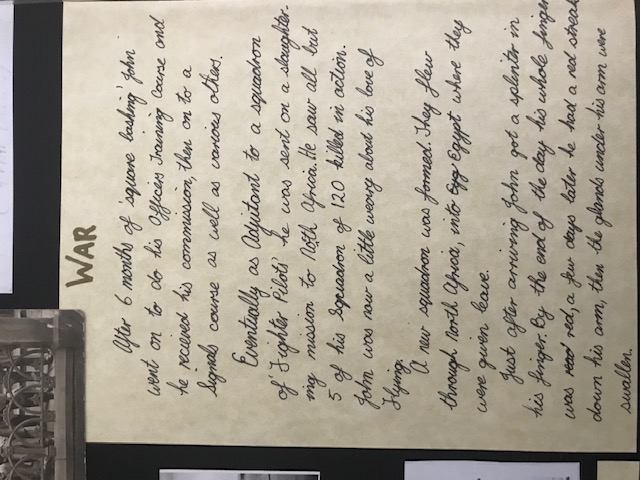 WAR
After 6 months of 'square bashing' John
went on to do his Officers Training Course and
he recieved his commission, then on to a
Signals course as well as various others.
Eventually as Adjutant to a squadron
of 'Fighter Pilots' he was sent on a slaughter-
ing mission to North Africa. He saw all but
5 of his Squadron of 120 killed in action.
John was now a little weary about his love of
Flying.
A new squadron was formed. They flew
through North Africa, into Egy Egypt where they
were given leave.
Just after arriving John got a splinter in
his finger. By the end of the day his whole finger
was read red, a few days later he had a red streak
down his arm, then the glands under his arm were
swallen.